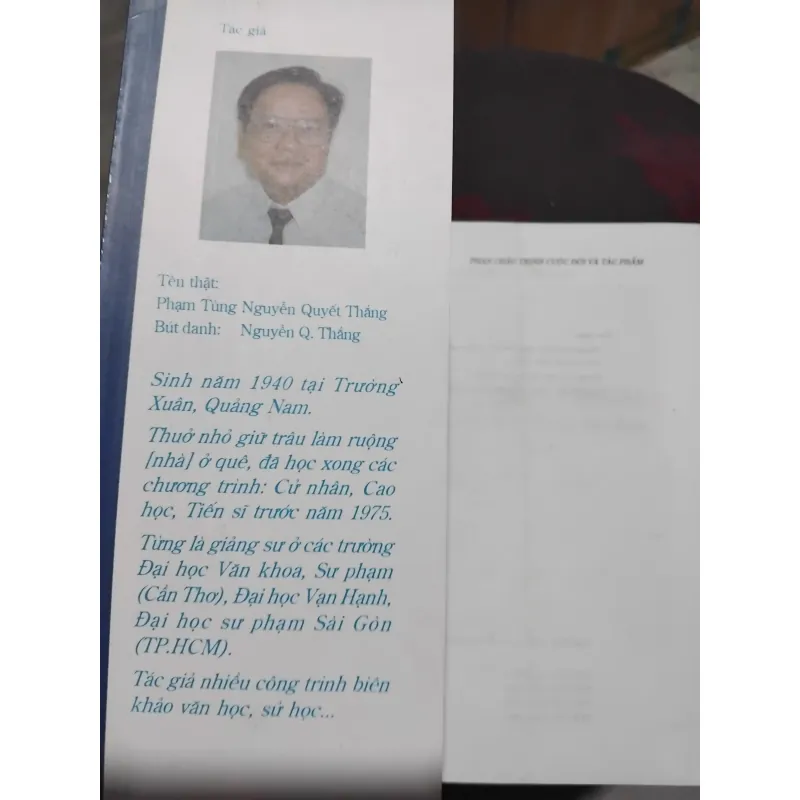 Tác giả
Tên thật:
Phạm Tùng Nguyễn Quyết Thắng
Bút danh: Nguyễn Q. Thắng
Sinh năm 1940 tại Trường
Xuân, Quảng Nam.
Thuở nhỏ giữ trâu làm ruộng
[nhà] ở quê, đã học xong các
chương trình: Cử nhân, Cao
học, Tiến sĩ trước năm 1975.
Từng là giảng sư ở các trường
Đại học Văn khoa, Sư phạm
(Cần Thơ), Đại học Vạn Hạnh,
Đại học sư phạm Sài Gòn
(TP.HCM).
Tác giả nhiều công trình biên
khảo văn học, sử học...
PHAN CHÂU TRINH CUỘC ĐỜI VÀ TÁC PHẨM